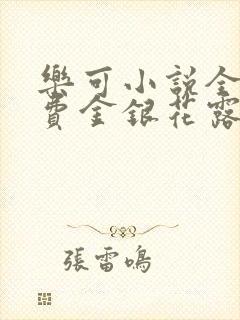 樂可小說全
費金銀花露
張雷鳴